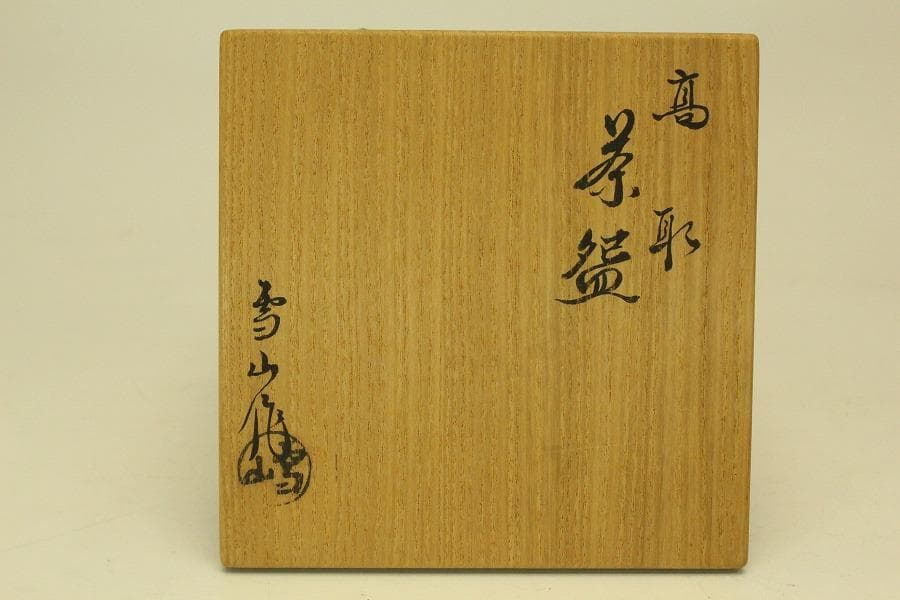 髙取
茶盌
雪山作
雪山